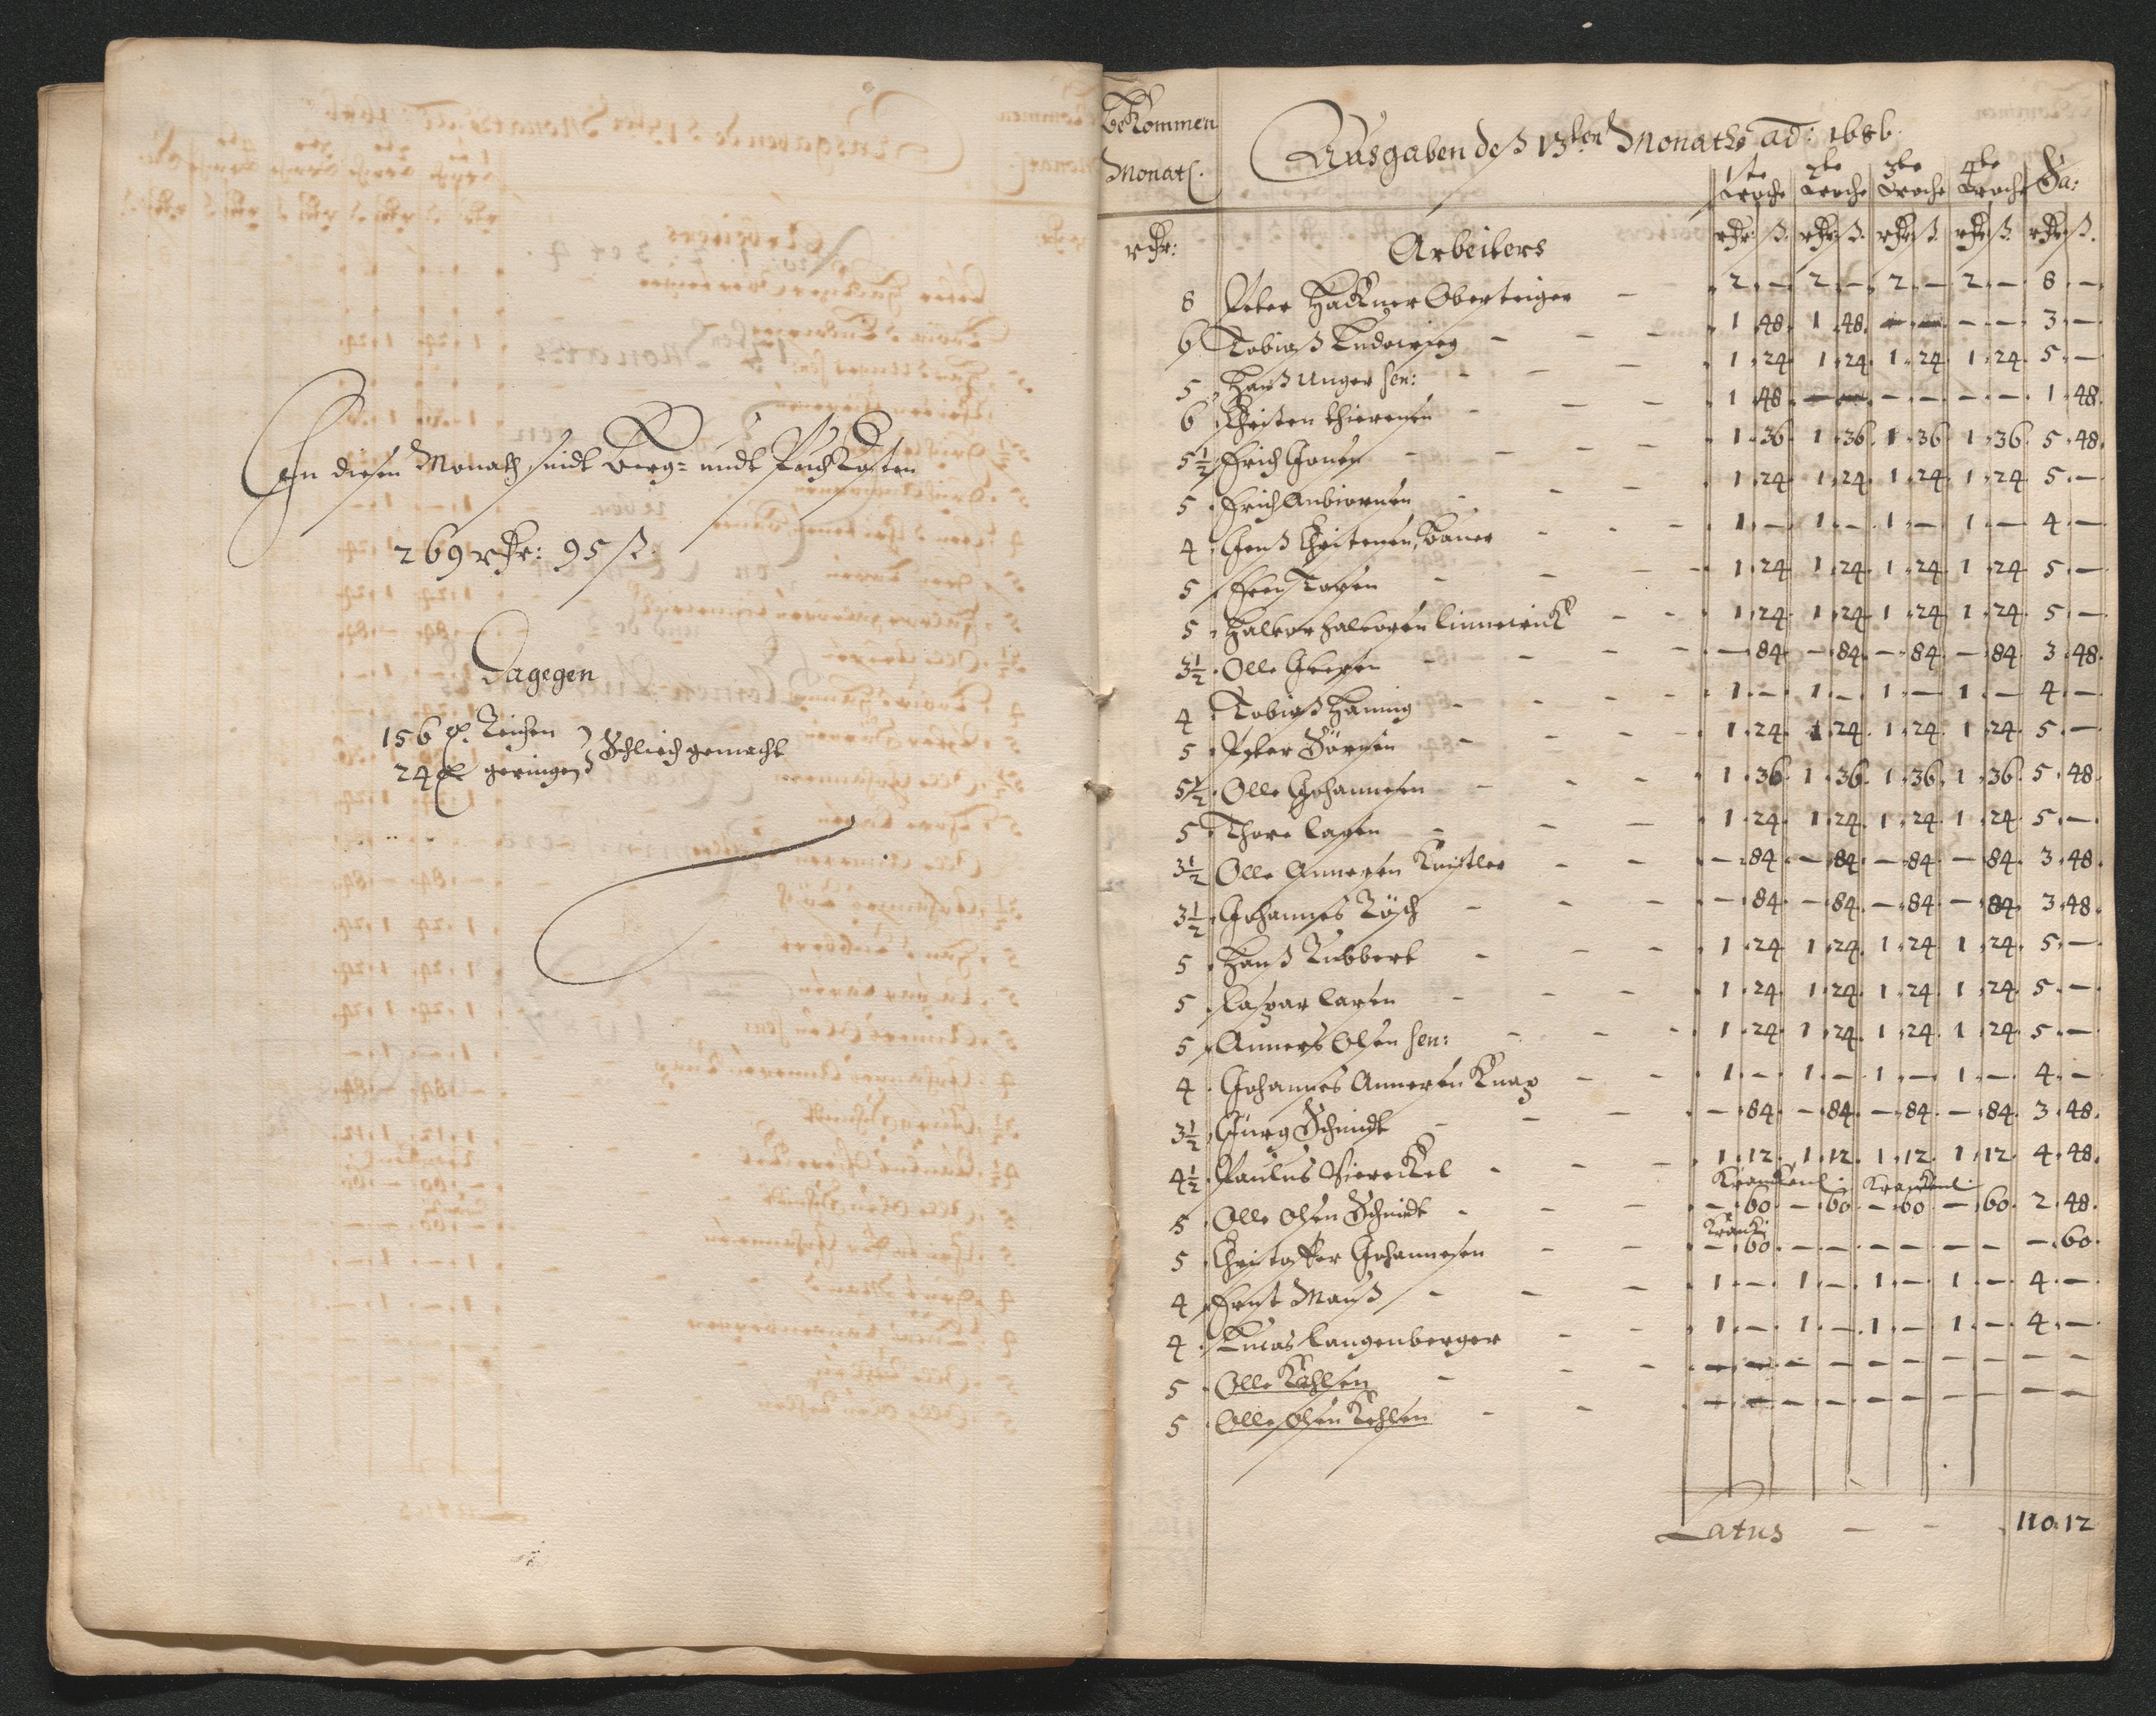 In diesen Monath sindt Berg= undt Puchkosten
269 rthr: 95 ß.
Dagegen
156 Reichen
24 geringen } Schliech gemacht
Bekommen
Monatl.
Ausgaben deß 13ten Monaths ad: 1686.
1te Woche 2te Woche 3te Woche 4te Woche Sa:
rthr: Arbeiters rthr: ß. rthr: ß. rthr: ß. rthr: ß. rthr: ß.
8 Peter Hackner Obersteiger - 2. — 2. — 2. — 2. — 8. —
6 Tobiaß Ludewieg - - - 1. 48. 1. 48. — — — — 3. —
5. Hanß Unger sen: - - - 1. 24. 1. 24. 1. 24. 1. 24. 5. —
6 Christen - - - 1. 48. — — — — — — 1. 48.
5½. Erich Jonsen - - - 1. 36. 1. 36. 1. 36. 1. 36. 5. 48.
5. Erich Anbiornsen - - - 1. 24. 1. 24. 1. 24. 1. 24. 5. —
4. Jenß Christensen, Bauer - - - 1. — 1. — 1. — 1. — 4. —
5. - - - 1. 24. 1. 24. 1. 24. 1. 24. 5. —
5. Halvor Halvorsen - - 1. 24. 1. 24. 1. 24. 1. 24. 5. —
3½. Olle Iversen - - - — 84. — 84. — 84. — 84. 3. 48.
4. Tobiaß Haning - - - 1. — 1. — 1. — 1. — 4. —
5. Peter Sörnsen - - - 1. 24. 1. 24. 1. 24. 1. 24. 5. —
5½. Olle Johannesen - - - 1. 36. 1. 36. 1. 36. 1. 36. 5. 48.
5. Thore Larsen - - - 1. 24. 1. 24. 1. 24. 1. 24. 5. —
3½ Olle Annersen - - — 84. — 84. — 84. — 84. 3. 48.
3½. Johannes Rösch - - - — 84. — 84. — 84. — 84. 3. 48.
5. Hanß Lubbert - - - 1. 24. 1. 24. 1. 24. 1. 24. 5. —
5. Caspar Larsen - - - 1. 24. 1. 24. 1. 24. 1. 24. 5. —
5. Anners Olsen sen: - - - 1. 24. 1. 24. 1. 24. 1. 24. 5. —
4. Johannes Annersen Knap - - 1. — 1. — 1. — 1. — 4. —
3½. Jürg Schmidt - - - — 84. — 84. — 84. — 84. 3. 48.
4½. Paulus Viereckel - - - 1. 12. 1. 12. 1. 12. 1. 12. 4. 48.
5. Olle Olsen Schmidt - - - — 60 — 60 — 60 — 60. 2. 48.
5. Christoffer Johannesen - - — 60. — — — — — — — 60.
4. Ernt Mauß - - - 1. — 1. — 1. — 1. — 4. —
4. Lucas Langenberger - - 1. — 1. — 1. — 1. — 4. —
5. Olle Kohlsen - - - — — — — — — — — — —
5. Olle Olsen Kohlsen - - — — — — — — — — — —
Latus — - 110. 12